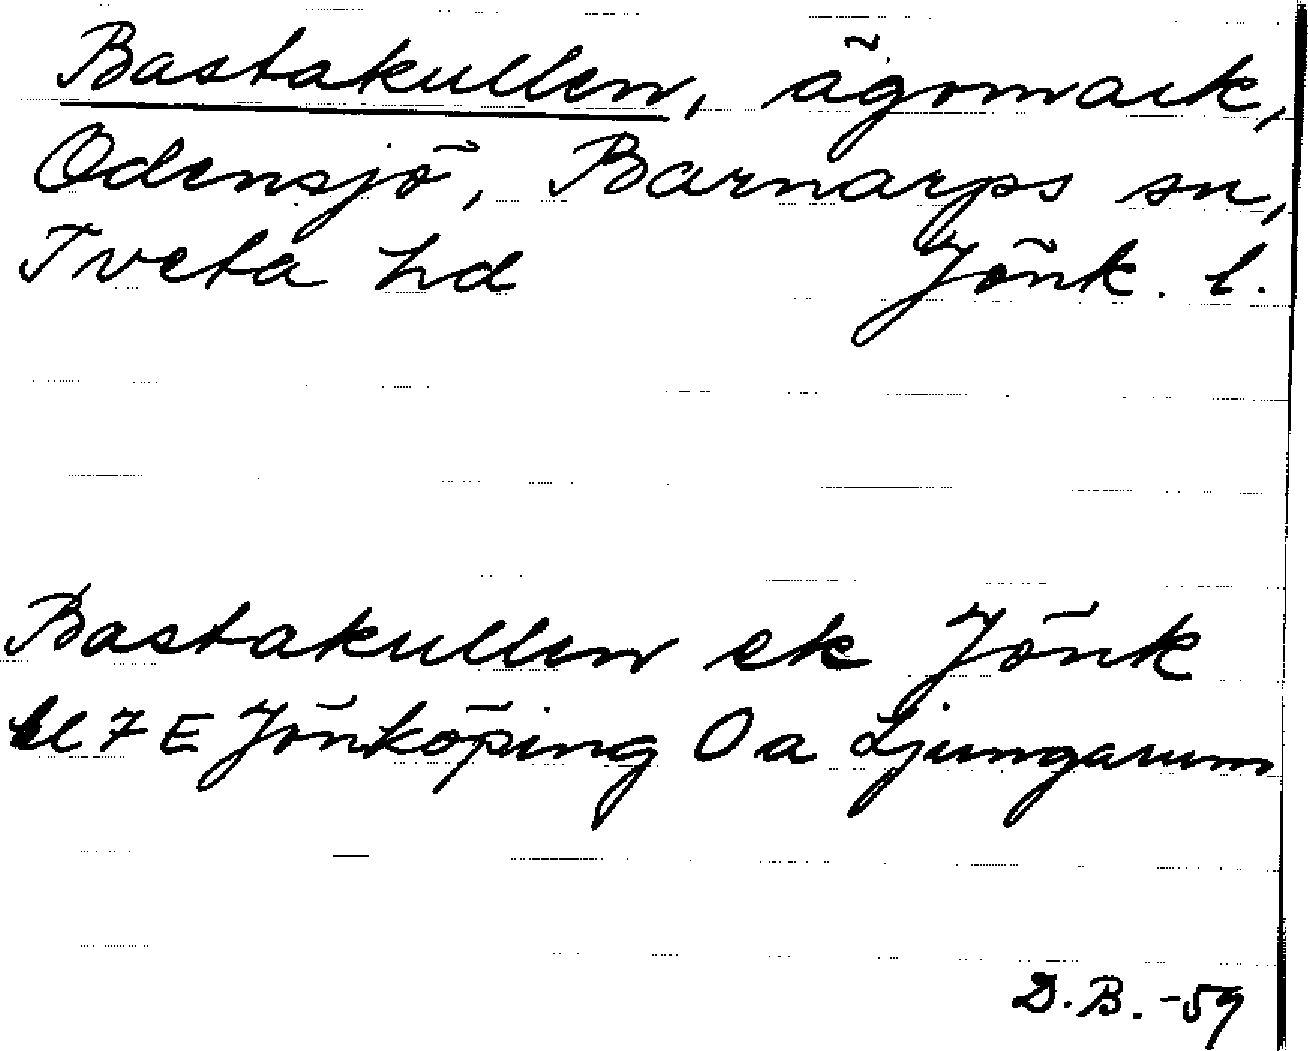 Bastakullen, ägomark,
Odensjö, Barnarps sn,
Tveta hd Jönk. l.
Bastakullen ek Jönk
bl 7 E Jönköping O a Ljungarum
D.B. -59